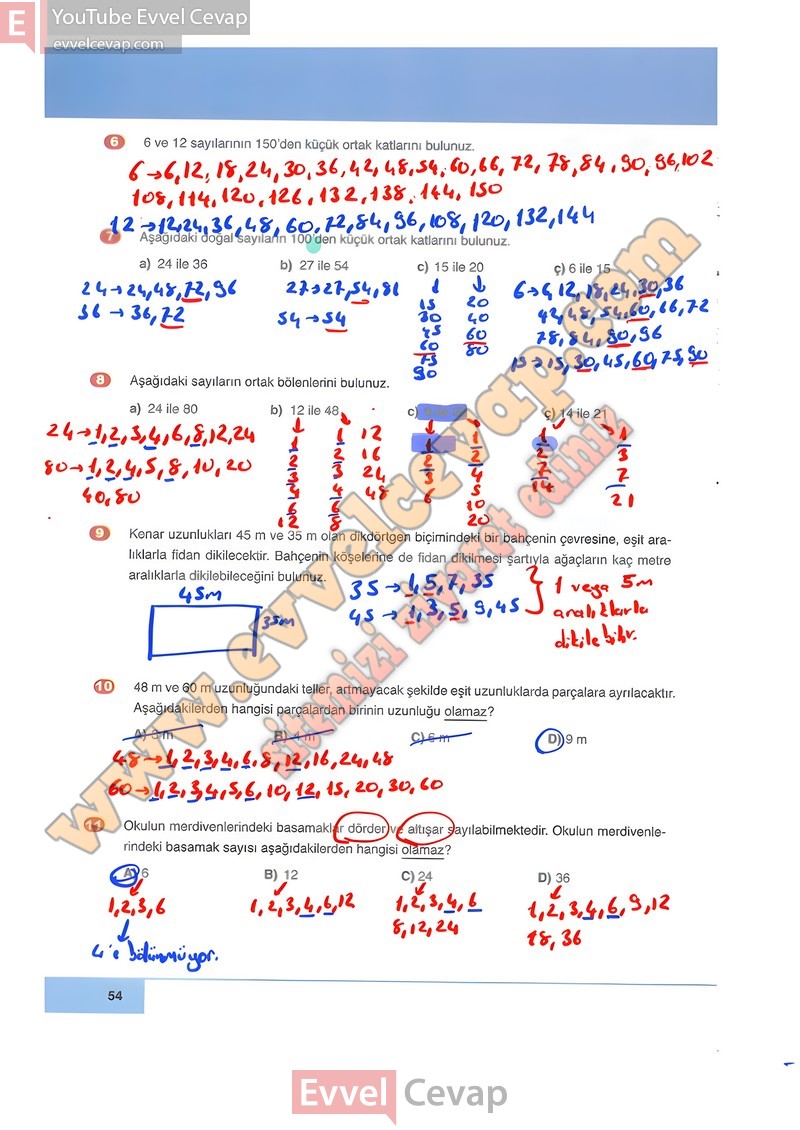 E YouTube Evvel Cevap
evvelcevap.com
6 6 ve 12 sayılarının 150'den küçük ortak katlarını bulunuz.
6→6,12,18,24,30,36,42,48,54,60,66,72,78,84,90,96,102
108,114,120,126,132,138,144,150
12→12,24,36,48,60,72,84,96,108,120,132,144
7 Aşağıdaki doğal sayıların 100'den küçük ortak katlarını bulunuz.
a) 24 ile 36 b) 27 ile 54 c) 15 ile 20 ç) 6 ile 15
24→24,48,72,96 27→27,54,81 ↓ ↓ 6→6,12,18,24,30,36
36→36,72 54→54 15 20 42,48,54,60,66,72
30 40 78,84,90,96
45 60 15→15,30,45,60,75,90
60 80
75
90
8 Aşağıdaki sayıların ortak bölenlerini bulunuz.
a) 24 ile 80 b) 12 ile 48 c) ç) 14 ile 21
24→1,2,3,4,6,8,12,24 1 1 12 1 1 1 1
80→1,2,4,5,8,10,20 2 2 16 2 2 2 3
40,80 3 3 24 3 4 7 7
4 4 48 6 5 14 21
6 6 10
12 8 20
9 Kenar uzunlukları 45 m ve 35 m olan dikdörtgen biçimindeki bir bahçenin çevresine, eşit ara-
lıklarla fidan dikilecektir. Bahçenin köşelerine de fidan dikilmesi şartıyla ağaçların kaç metre
aralıklarla dikilebileceğini bulunuz.
45m
35m
35→1,5,7,35
45→1,3,5,9,45
1 veya 5m
aralıklarla
dikilebilir.
10 48 m ve 60 m uzunluğundaki teller, artmayacak şekilde eşit uzunluklarda parçalara ayrılacaktır.
Aşağıdakilerden hangisi parçalardan birinin uzunluğu olamaz?
A) 3 m B) 4 m C) 6 m D) 9 m
48→1,2,3,4,6,8,12,16,24,48
60→1,2,3,4,5,6,10,12,15,20,30,60
11 Okulun merdivenlerindeki basamaklar dörder ve altışar sayılabilmektedir. Okulun merdivenle-
rindeki basamak sayısı aşağıdakilerden hangisi olamaz?
A) 6 B) 12 C) 24 D) 36
1,2,3,6 1,2,3,4,6,12 1,2,3,4,6 1,2,3,4,6,9,12
8,12,24 18,36
4'e bölünmüyor.
54
www.evvelcevap.com
sitemizi ziyaret ediniz
Evvel Cevap